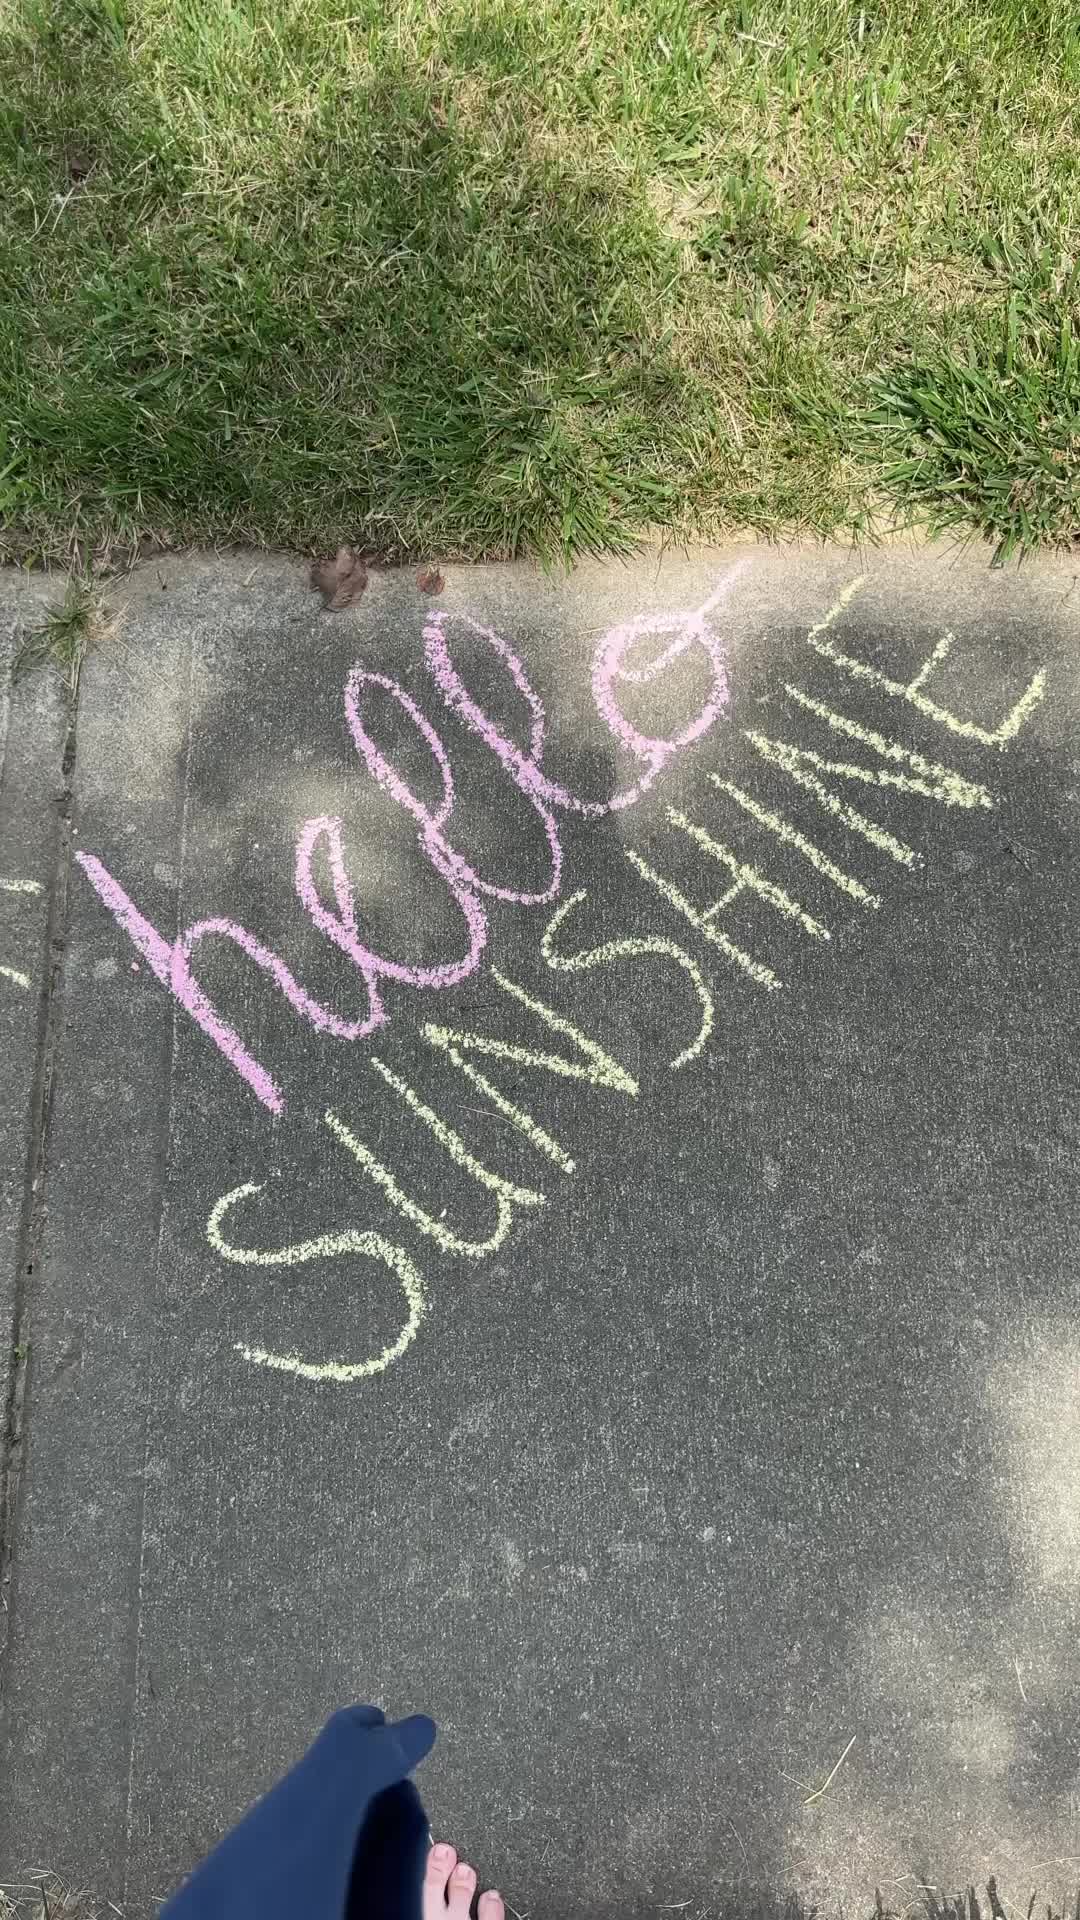 hello
SUNSHINE